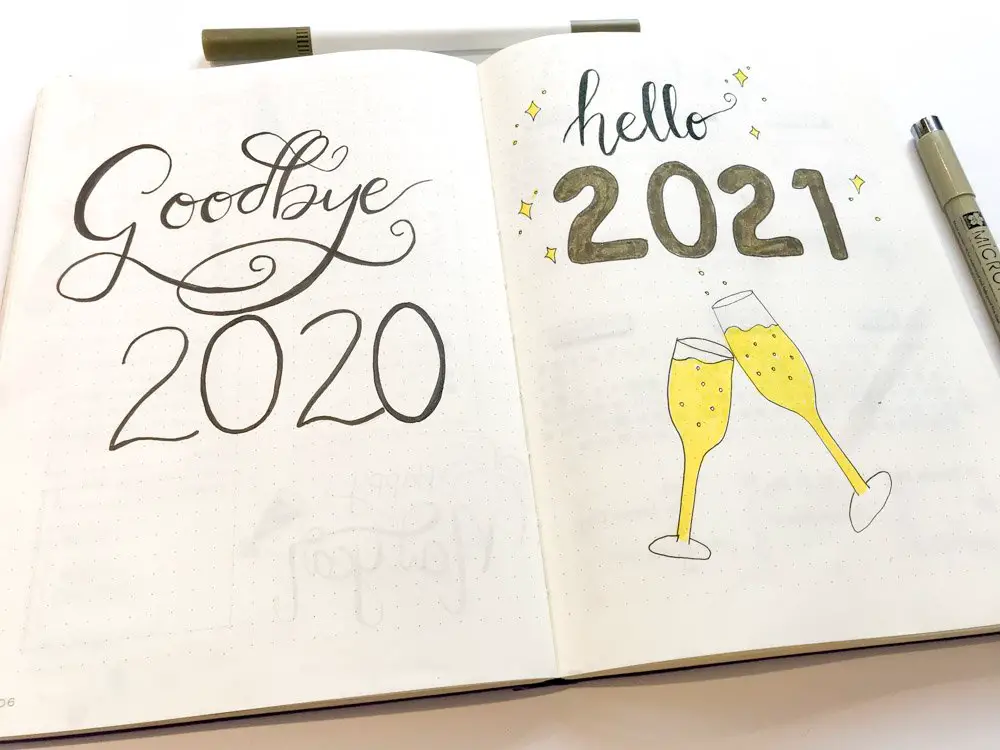 Goodbye
2020
hello
2021
MICRO
06